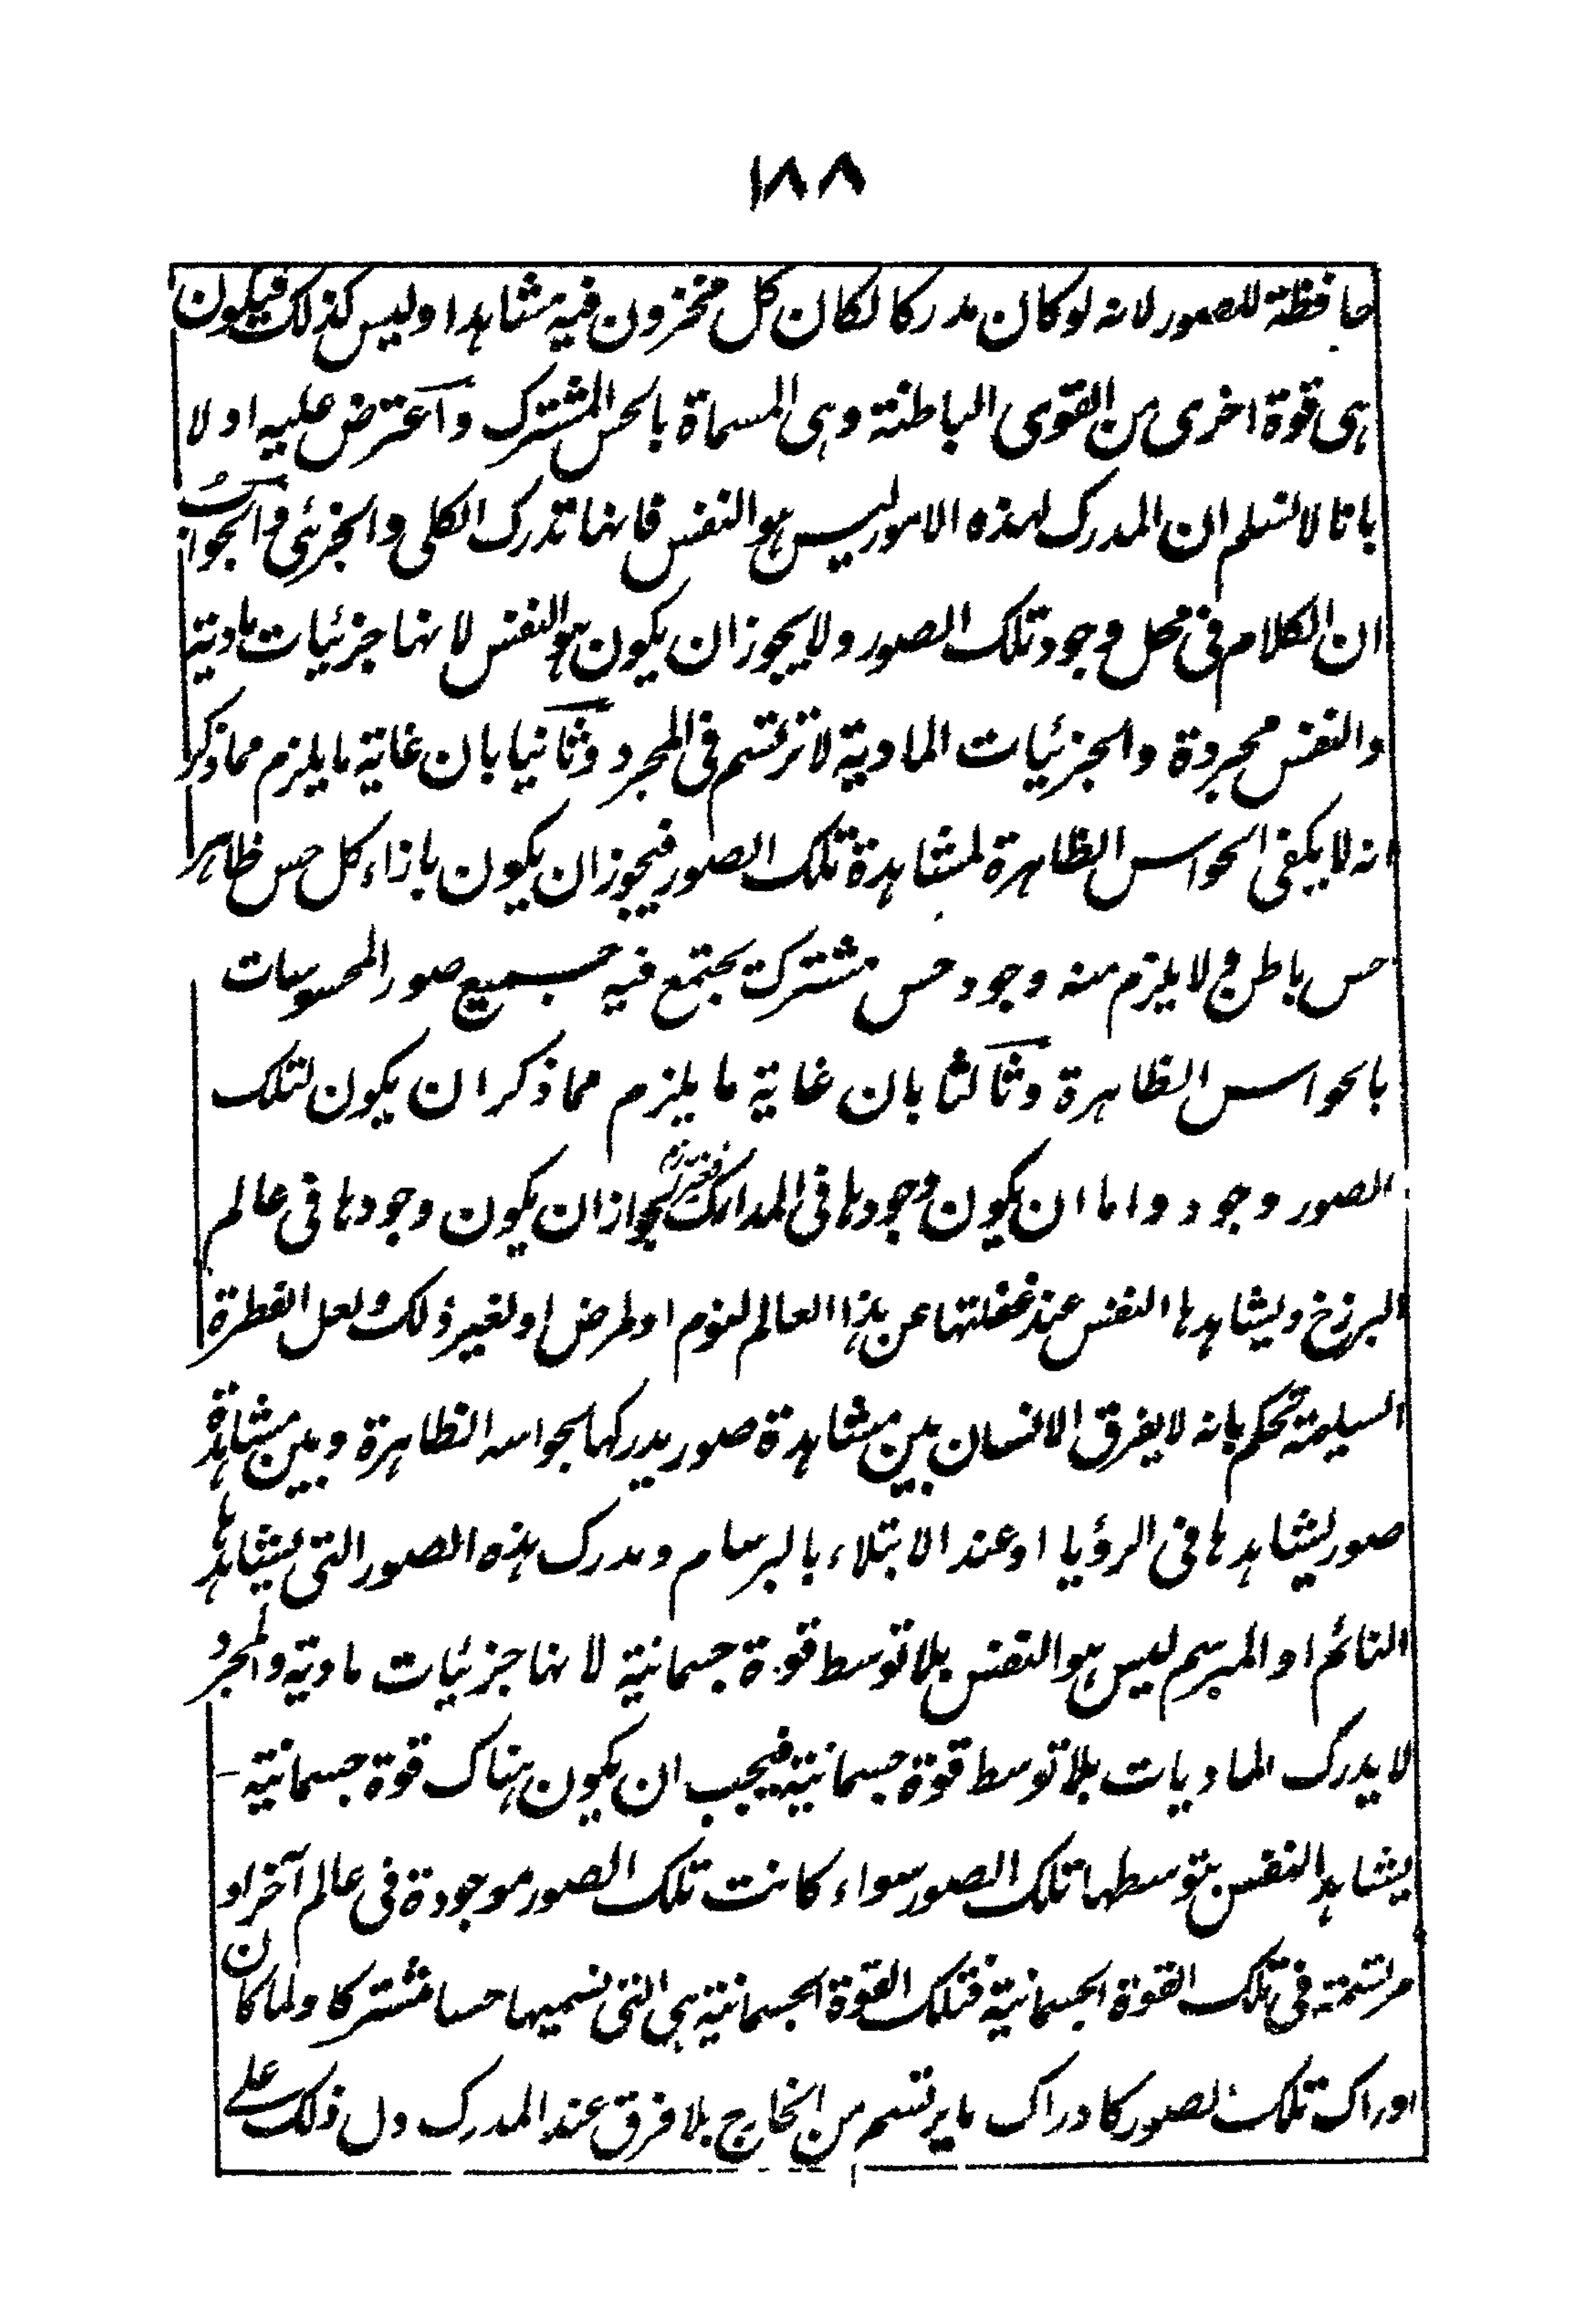 ١٨٨
حافظة للصور لانه لو كان مدركا لكان كل مخزون فيه مشاهدا وليس كذلك فيكون
هى قوة اخرى من القوى الباطنة وهى المسماة بالحس المشترك واعترض عليه اولا
بانا لا نسلم ان المدرك لهذه الامور ليس هو النفس فانها تدرك الكلى والجزئى والجواب
ان الكلام فى محل وجود تلك الصور ولا يجوز ان يكون هو النفس لانها جزئيات مادية
والنفس مجردة والجزئيات المادية لا ترتسم فى المجرد وثانيا بان غاية ما يلزم مما ذكر
انه لا يكفى الحواس الظاهرة لمشاهدة تلك الصور فيجوز ان يكون بازاء كل حس ظاهر
حس باطن ولا يلزم منه وجود حس مشترك يجتمع فيه جميع صور المحسوسات
بالحواس الظاهرة وثالثا بان غاية ما يلزم مما ذكر ان يكون لتلك
الصور وجود واما ان يكون وجودها فى المدارك لجواز ان يكون وجودها فى عالم
البرزخ ويشاهدها النفس عند غفلتها عن هذا العالم لنوم او لمرض او لغير ذلك ولعل الفطرة
السليمة تحكم بانه لا يفرق الانسان بين مشاهدة صور يدركها بحواسه الظاهرة وبين مشاهدة
صور يشاهدها فى الرؤيا او عند الابتلاء بالبرسام ومدرك هذه الصور التى يشاهدها
النائم او المبرسم ليس هو النفس بلا توسط قوة جسمانية لانها جزئيات مادية والمجرد
لا يدرك الماديات بلا توسط قوة جسمانية فيجب ان يكون هناك قوة جسمانية
يشاهد النفس بتوسطها تلك الصور سواء كانت تلك الصور موجودة فى عالم آخر او
مرتسمة فى تلك القوة الجسمانية فتلك القوة الجسمانية هى التى نسميها حسا مشتركا ولما كان
ادراك تلك الصور كادراك ما يرتسم من الخارج بلا فرق عند المدرك دل ذلك على